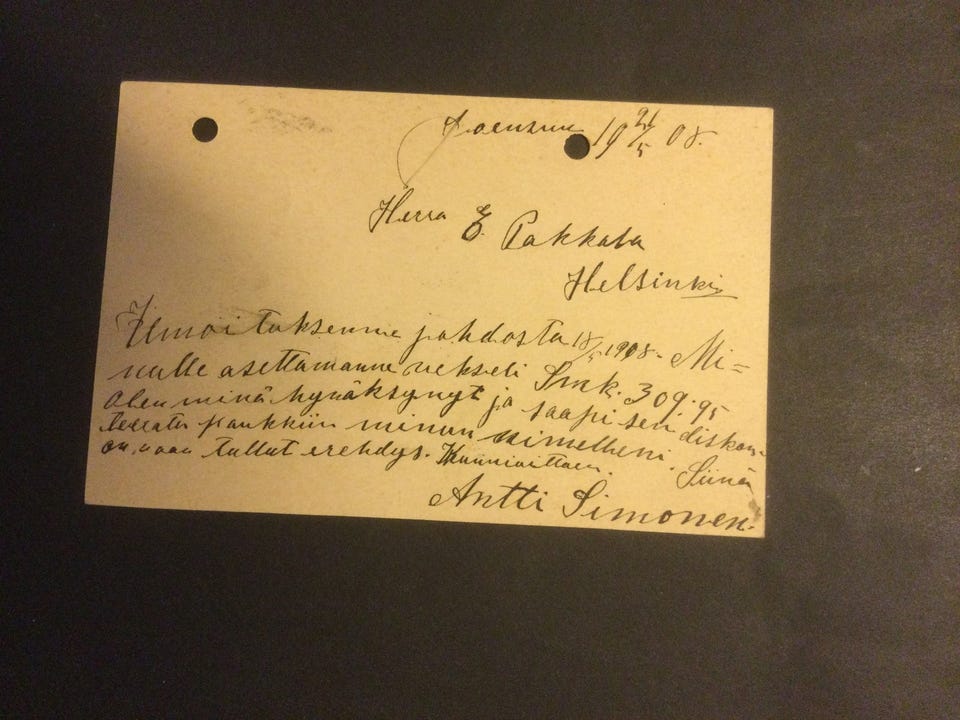 Joensuu 19 21/5 08.
Herra E. Pakkala
Helsinki
Ilmoituksenne johdosta 18/5 1908. Mi=
nulle asettamanne vekseli Smk. 309:95
olen minä hyväksynyt ja saapi sen diskon-
teerata pankkiin minun nimelleni. Siinä
on vaan tullut erehdys. Kunnioittaen.
Antti Simonen.